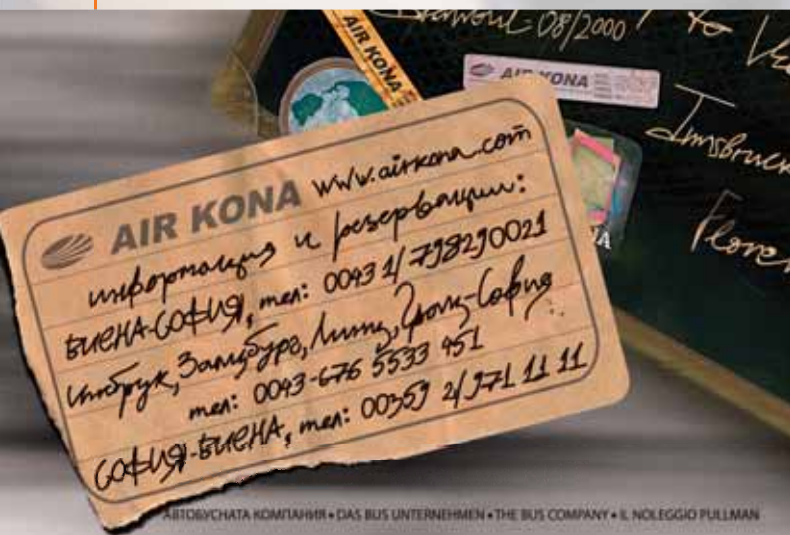 08/2000
to
AIR KONA
AIR KONA
Innsbruck
AIR KONA www.airkona.com
информация и резервации:
ВИЕНА-СОФИЯ, тел: 0043 1/798290021
Инсбрук, Залцбург, Линц, Грац-София
тел: 0043-676 5533 451
СОФИЯ-ВИЕНА, тел: 00359 2/971 11 11
АВТОБУСНАТА КОМПАНИЯ • DAS BUS UNTERNEHMEN • THE BUS COMPANY • IL NOLEGGIO PULLMAN